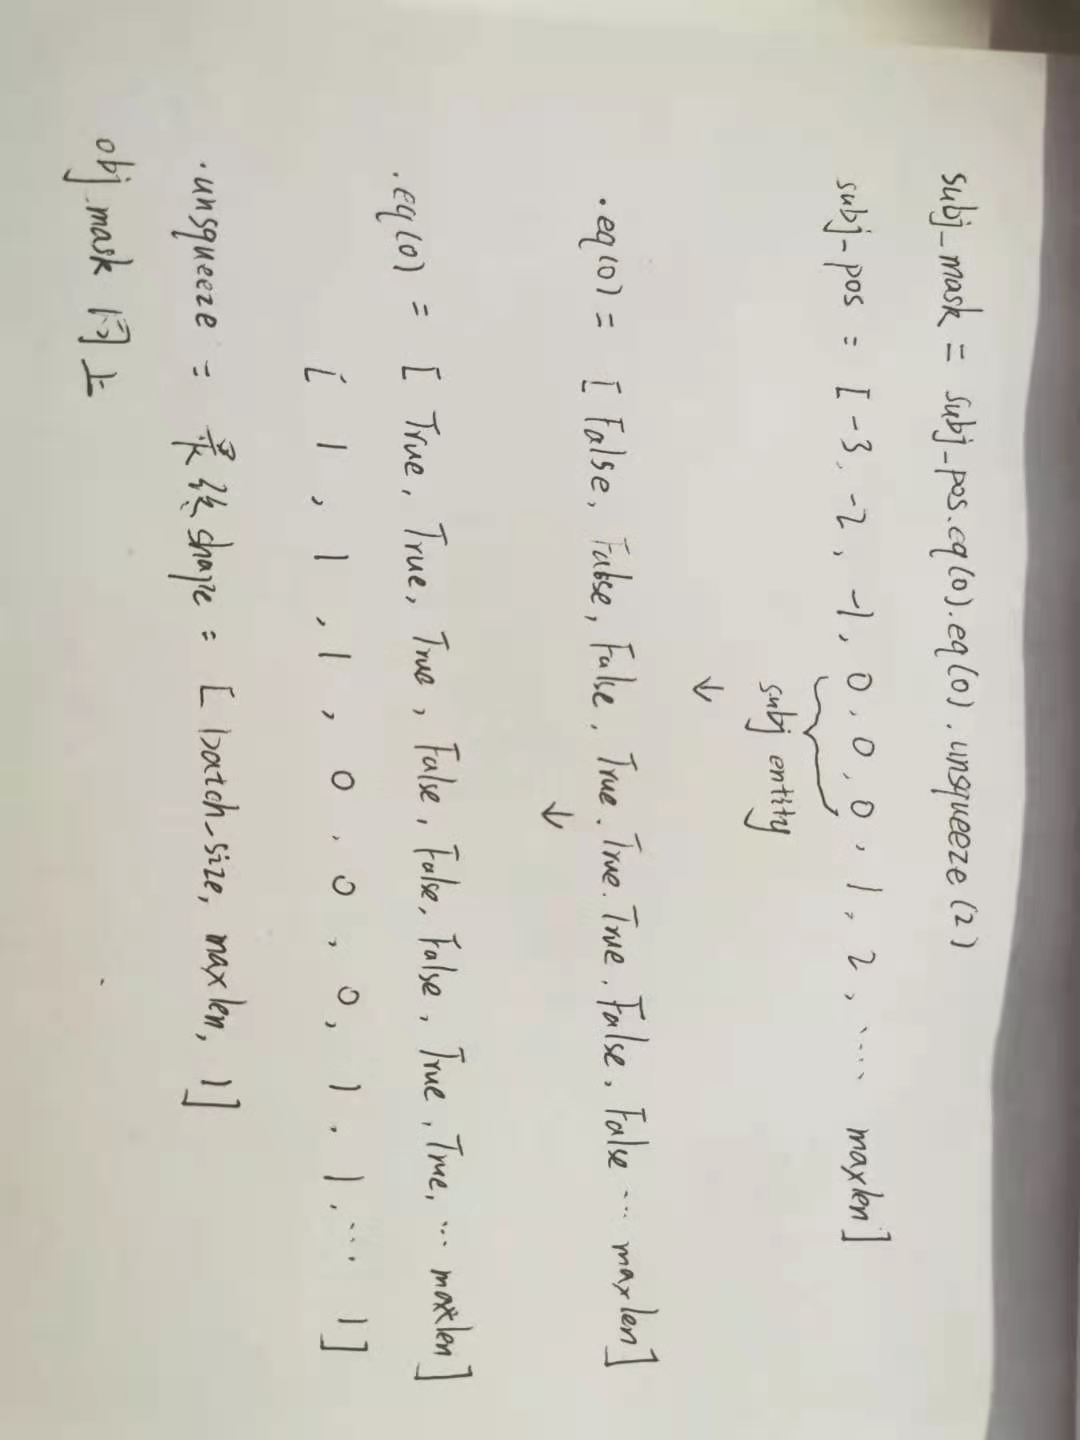 subj_mask = subj_pos.eq(0).eq(0).unsqueeze(2)
subj-pos = [-3, -2, -1, 0, 0, 0, 1, 2, .... maxlen]
subj entity
↓
.eq(0) = [False, False, False, True, True, True, False, False ... maxlen]
↓
.eq(0) = [True, True, True, False, False, False, True, True, ... maxlen]
[1, 1, 1, 0, 0, 0, 1, 1, ... 1]
.unsqueeze = 最后shape = [batch_size, maxlen, 1]
obj mask 同上